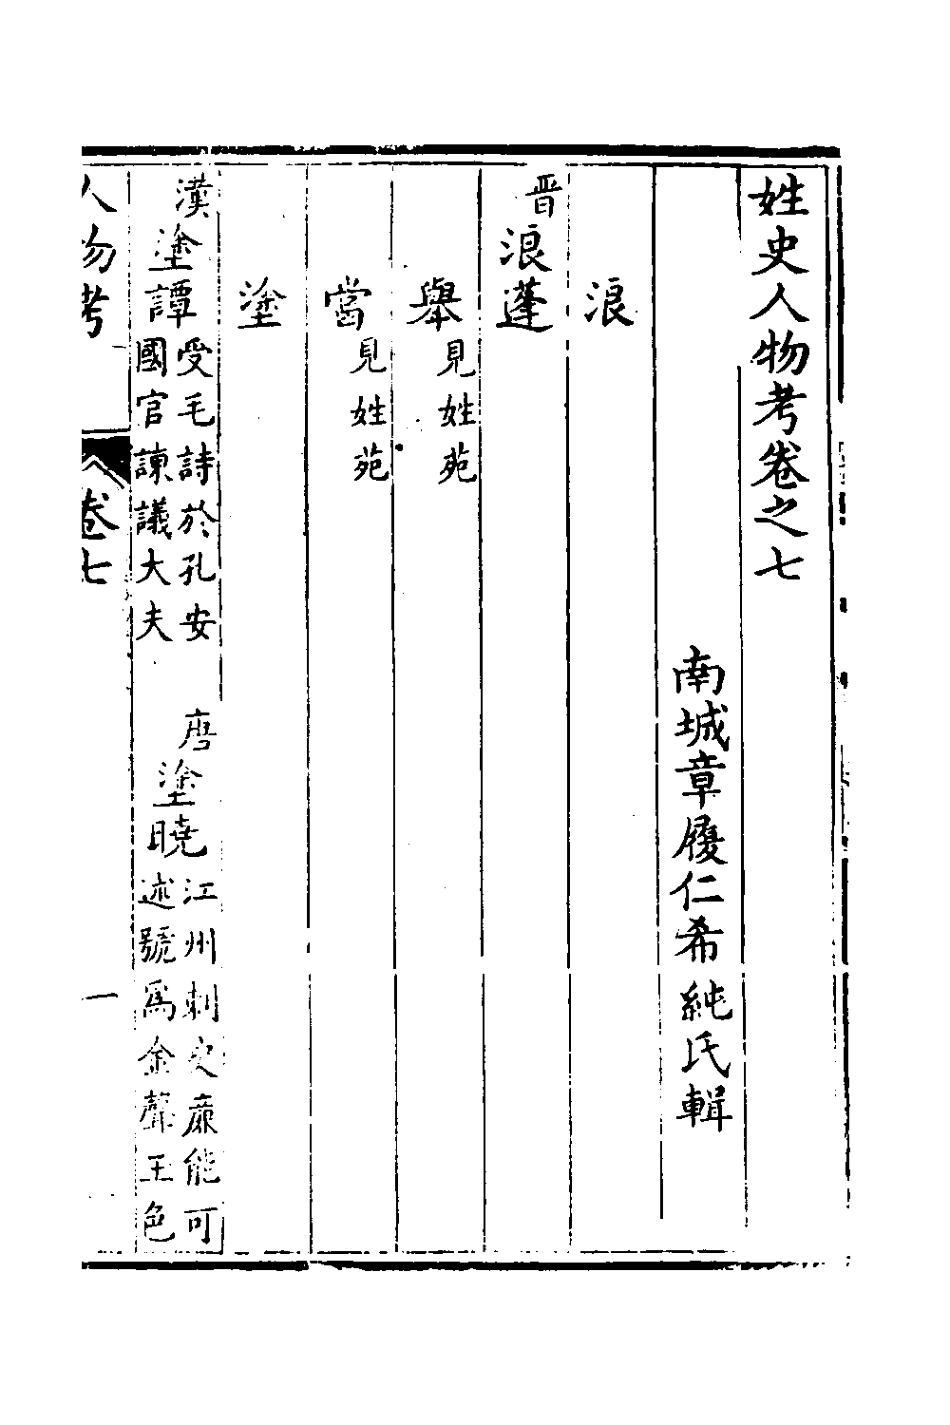 姓史人物考卷之七
南城章履仁希純氏輯
浪
晋浪蓬
舉見姓苑
當見姓苑
塗
漢塗譚受毛詩於孔安國官諫議大夫 唐塗曉江州刺史廉能可述號爲金聲玉色
人物考 卷七 一